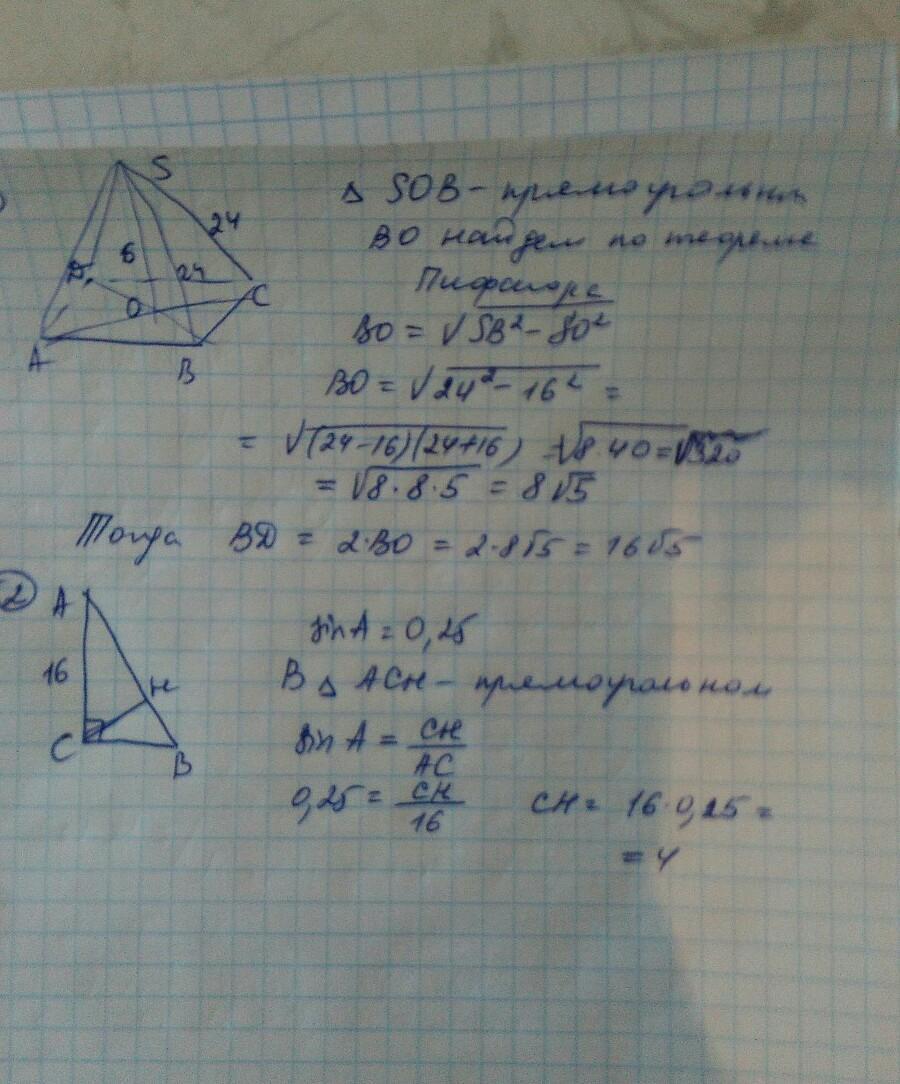 S
24
6
24
D
O
C
A
B
Δ SOB - прямоугольн
BO найдем по теореме
Пифагора
BO = √SB² - SO²
BO = √24² - 16² =
= √(24-16)(24+16) = √8·40 = √320
= √8·8·5 = 8√5
Тогда BD = 2·BO = 2·8√5 = 16√5
2
A
16
H
C
B
sin A = 0,25
В Δ ACH - прямоугольном
sin A = CH/AC
0,25 = CH/16 CH = 16·0,25 =
= 4